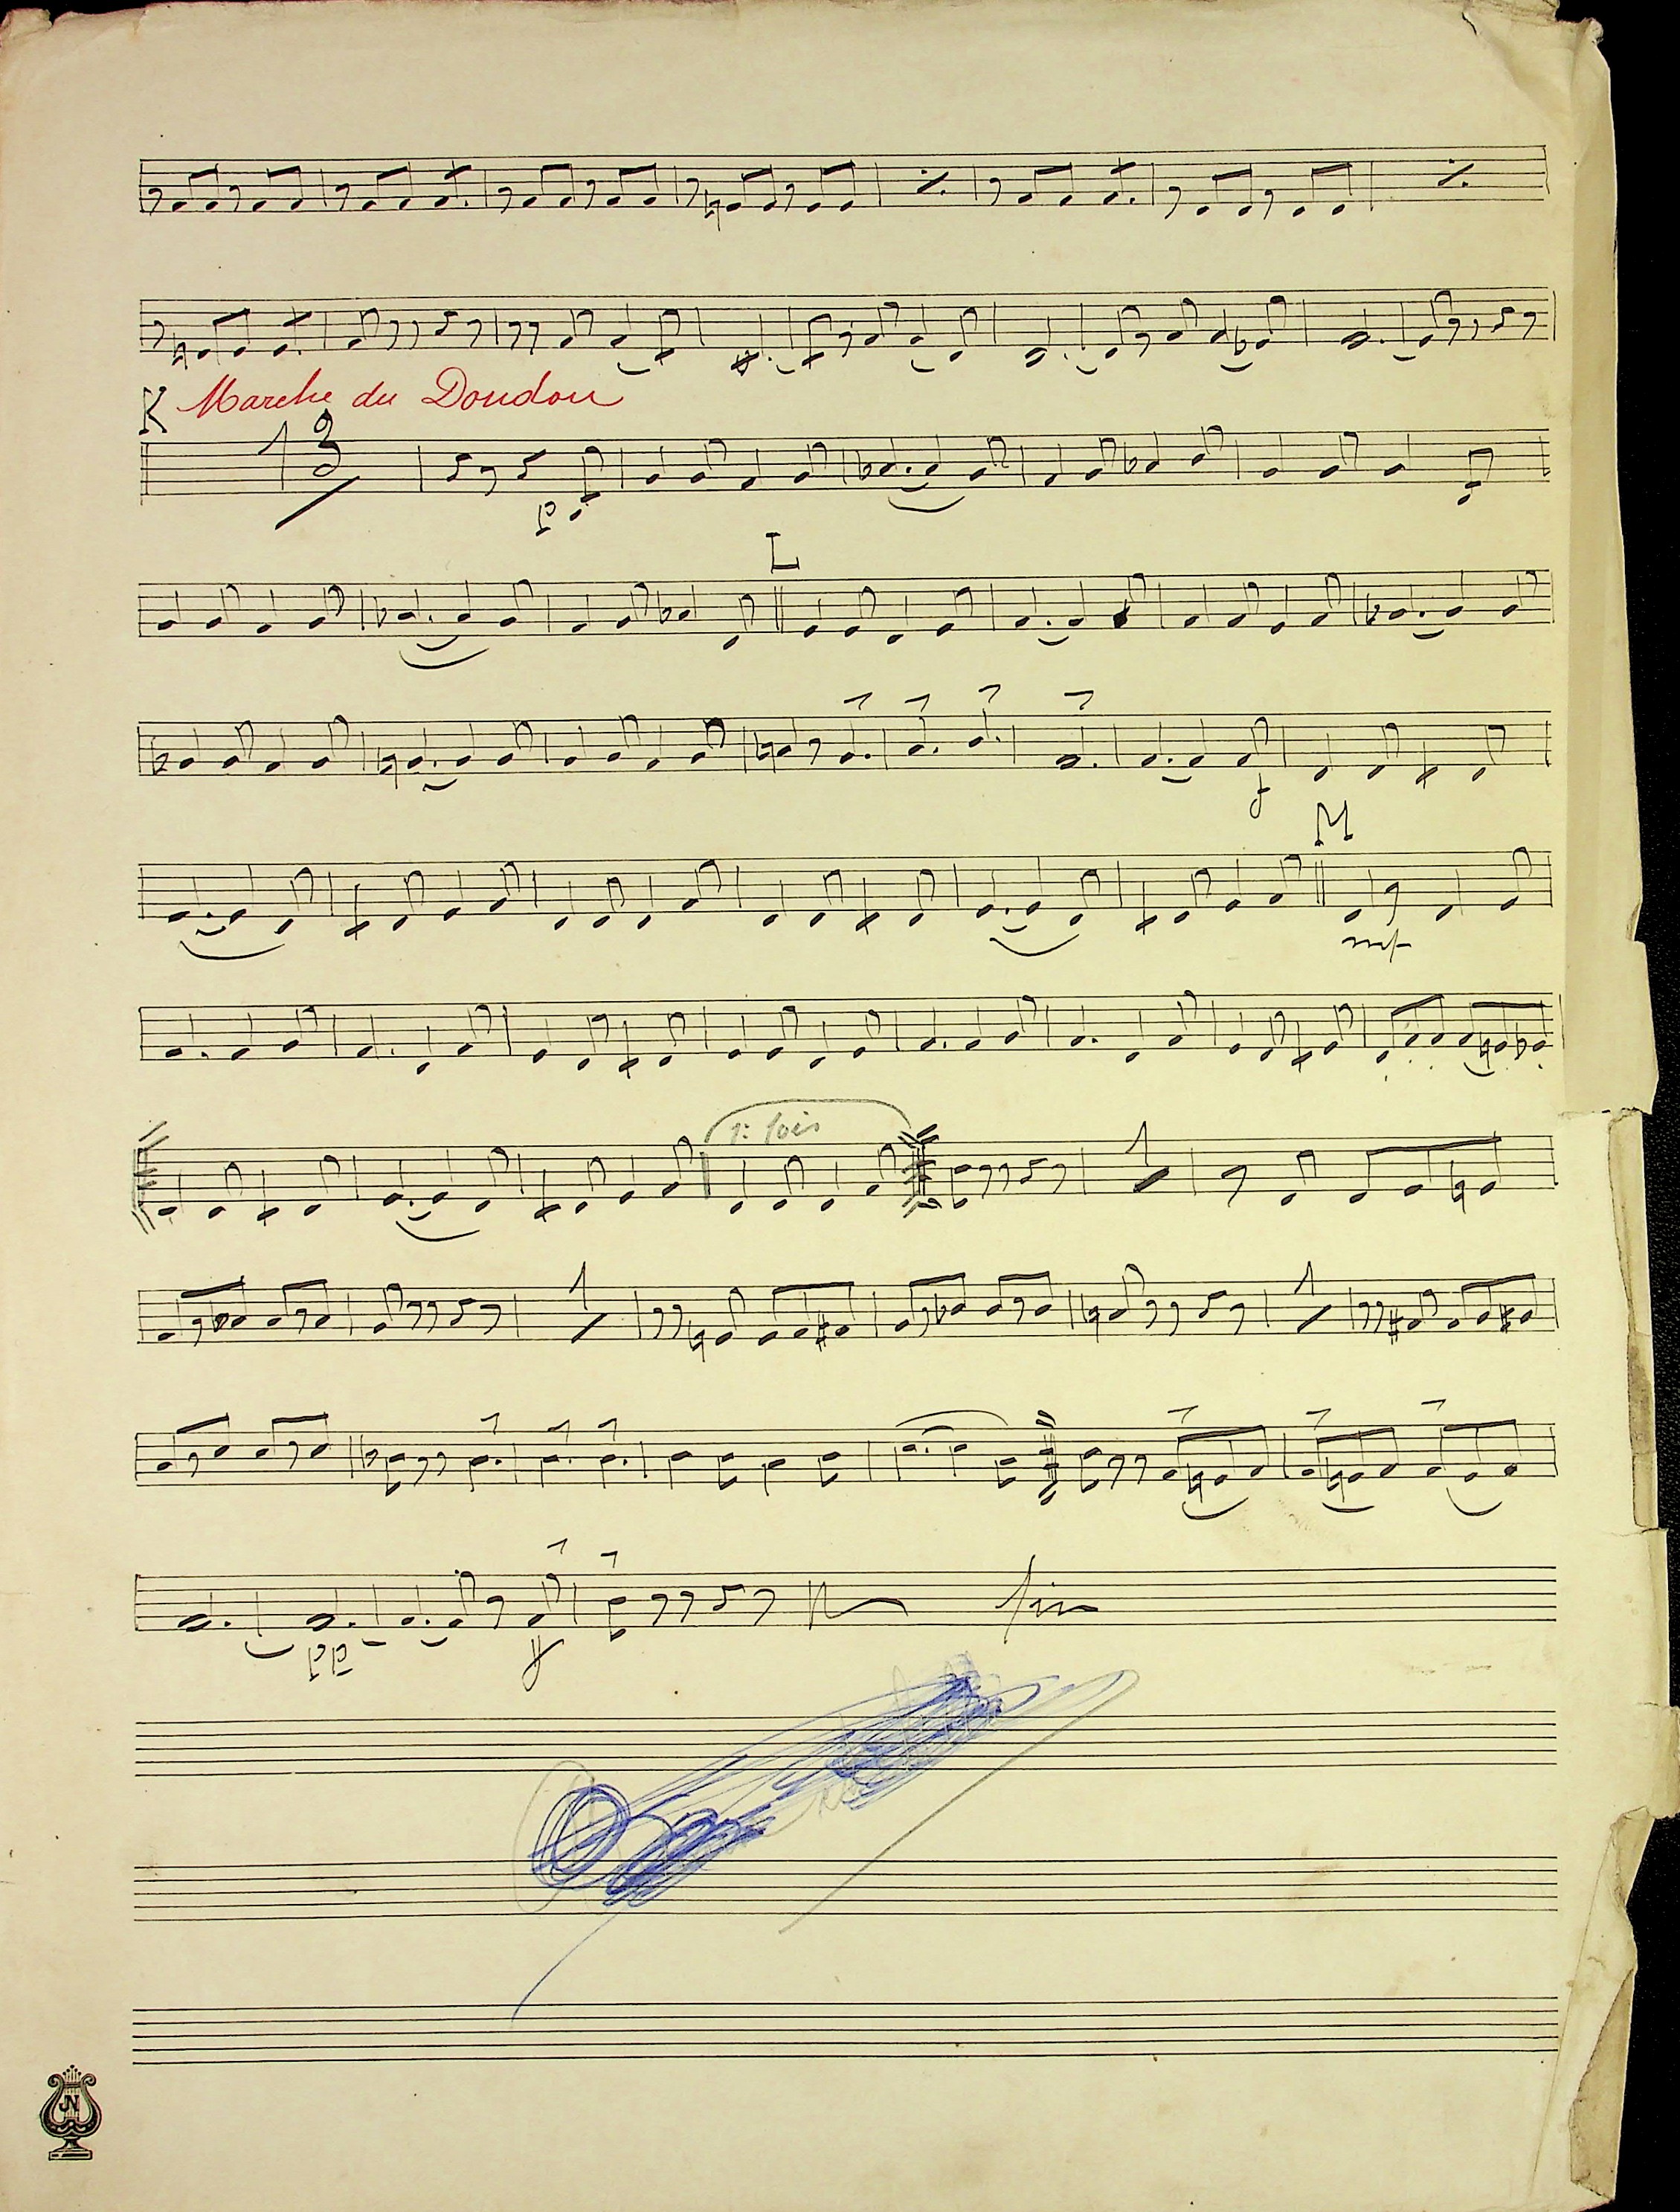 K Marche du Doudou
1 2
p
L
f
M
mf
1: fois
1
1 1
pp ff fin
JN